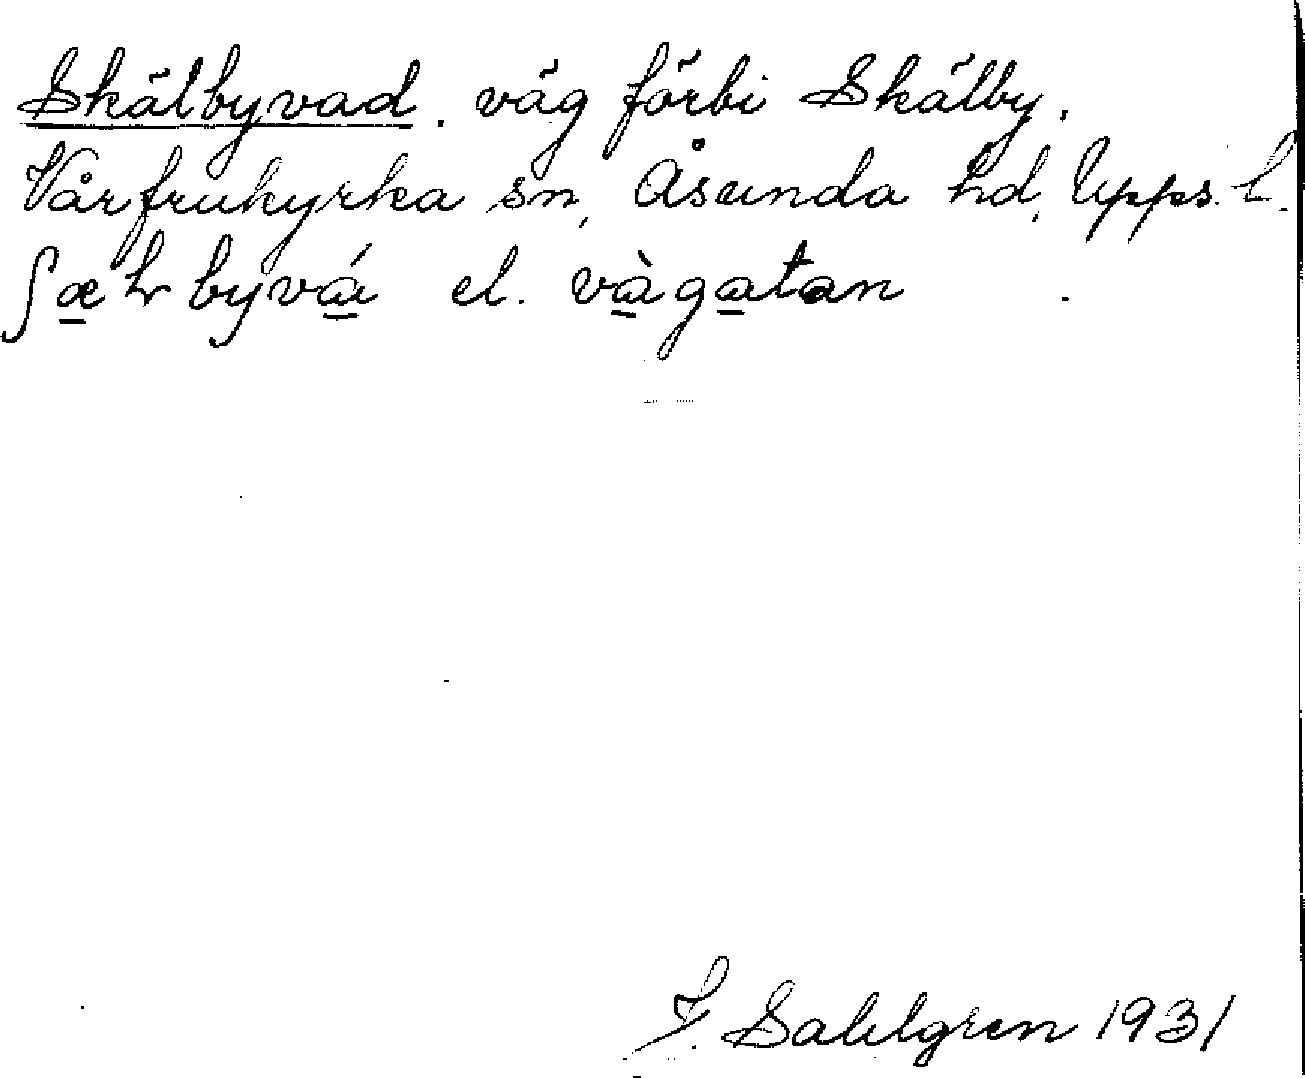 Skälbyvad. väg förbi Skälby.
Vårfrukyrka sn, Åsunda hd, Upps. l.
byvá el. vàgatan
J. Sahlgren 1931